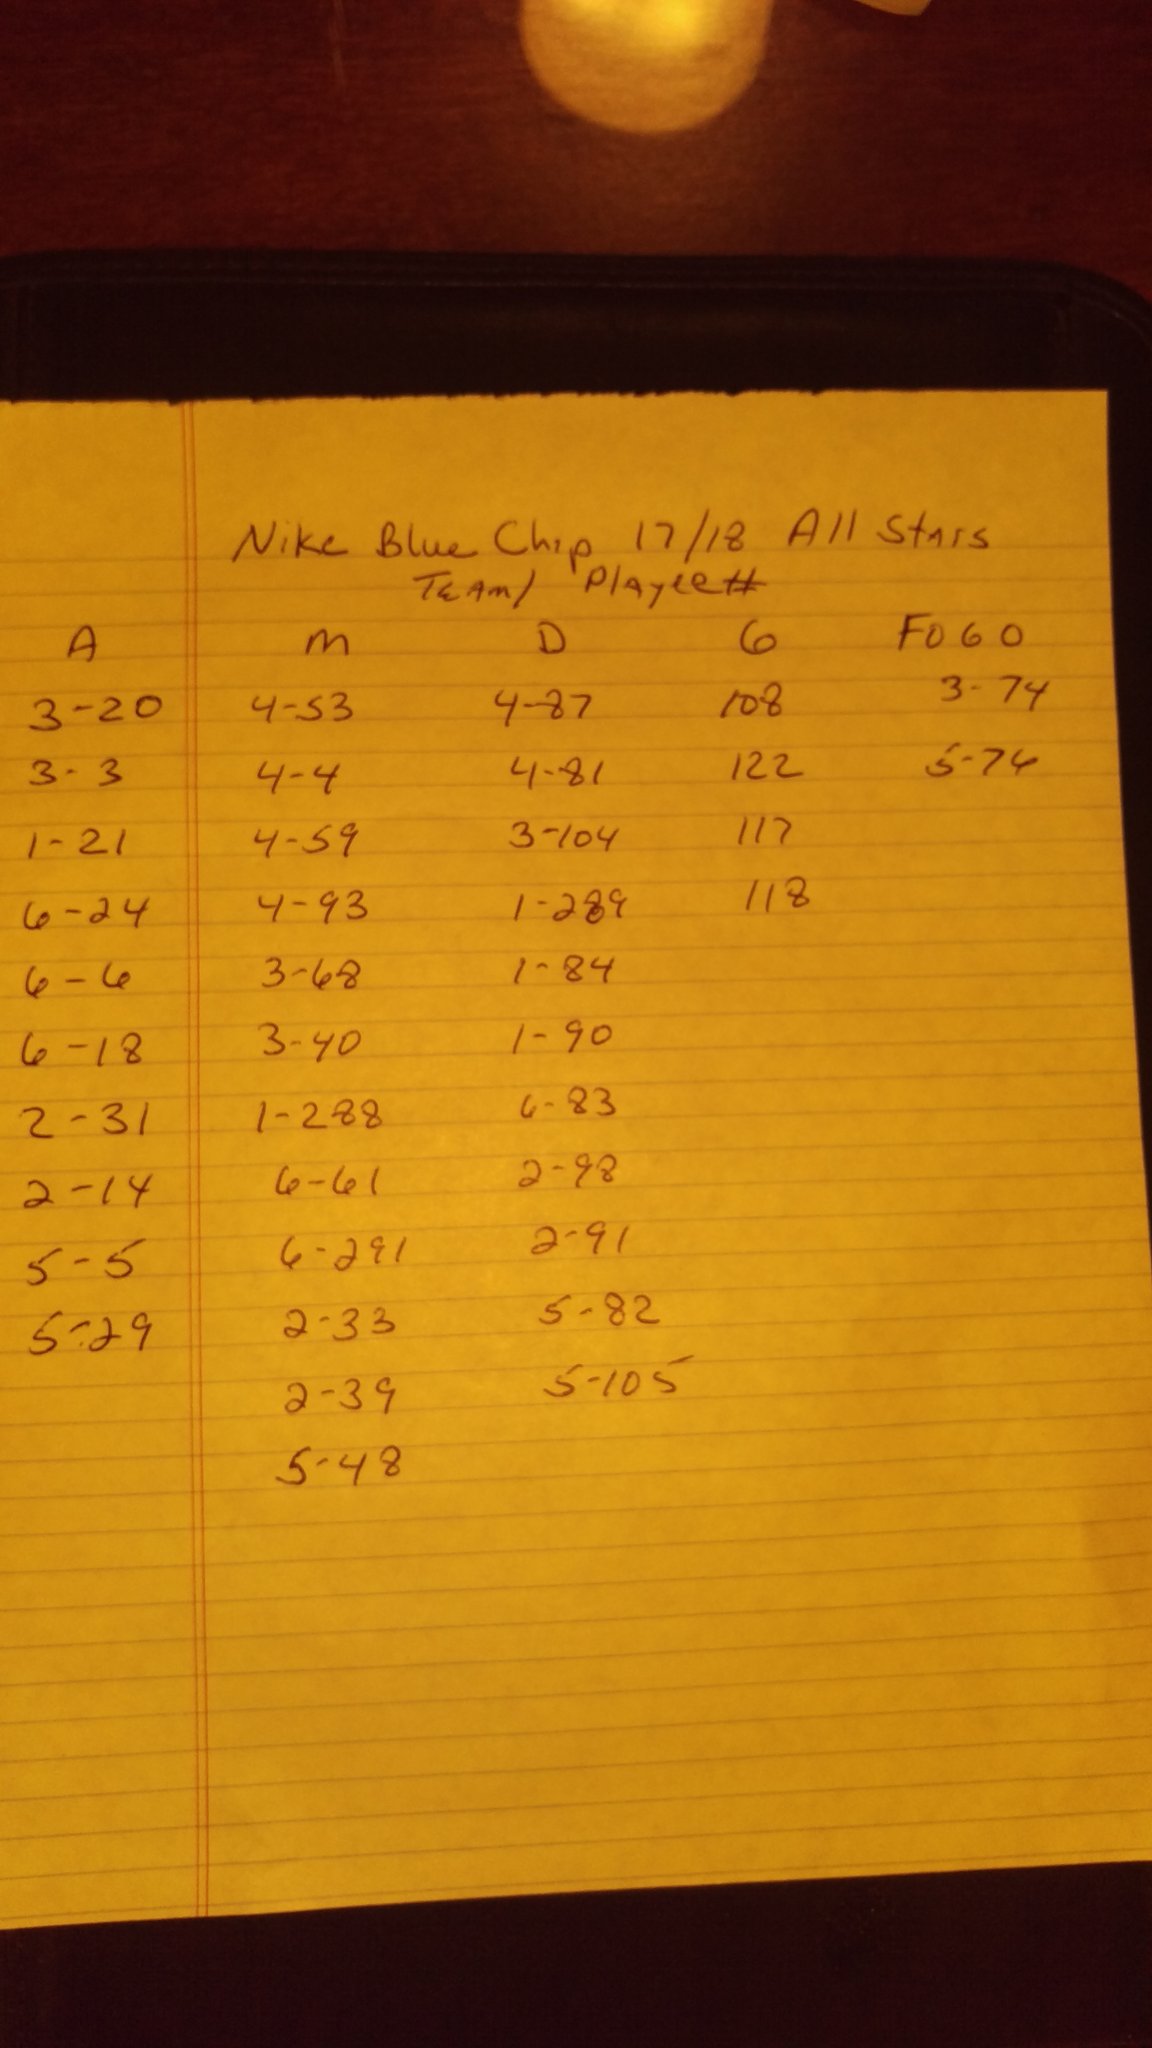 Nike Blue Chip 17/18 All Stars
Team/ Player#
A M D G FOGO
3-20 4-53 4-87 108 3-74
3-3 4-4 4-81 122 5-76
1-21 4-59 3-104 117
6-24 4-93 1-289 118
6-6 3-68 1-84
6-18 3-40 1-90
2-31 1-288 6-83
2-14 6-61 2-98
5-5 6-291 2-91
5-29 2-33 5-82
2-39 5-105
5-48